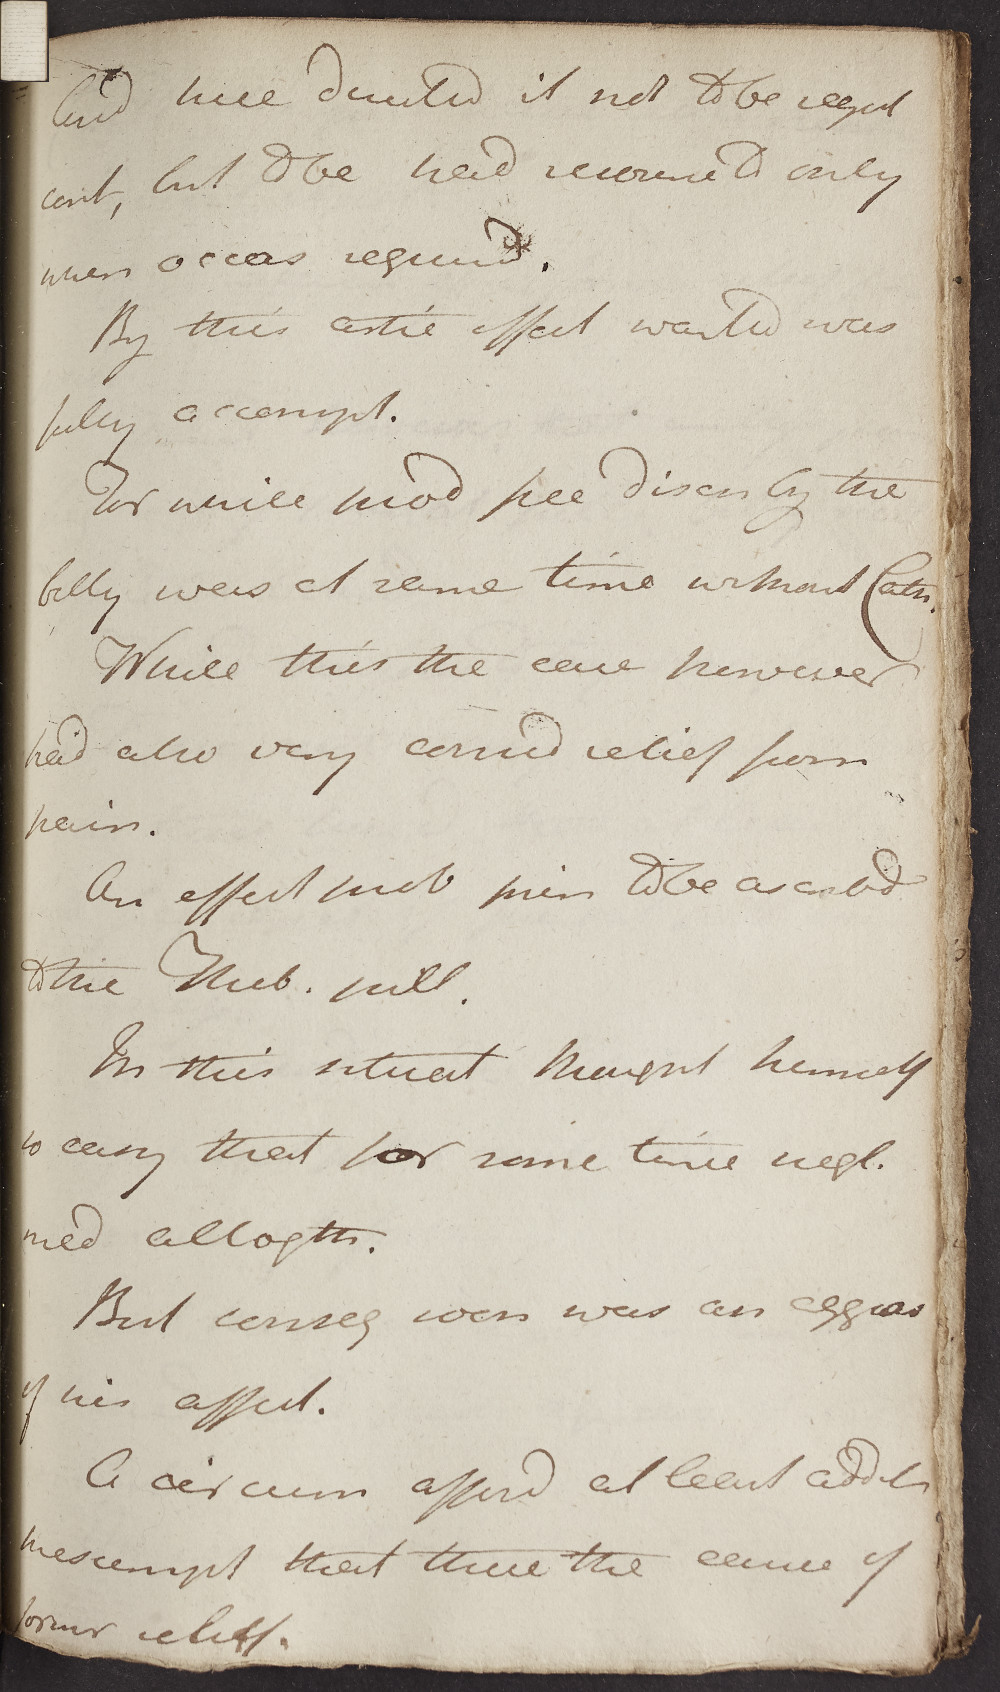 And here directed it not to be regul
cont, but to be had recourse to only
when occas requird.
By this artic effect wanted was
fully accompl.
For while prod free disch by the
belly was at same time without Cath.
While this the case however
had also very consid relief from
pain.
An effect prob prin to be ascribd
to the Theb. pill.
In this situat thought himself
so easy that for some time negl.
med altogth.
But conseq soon was an aggrav
of his affect.
A circum afford at least addit
presumpt that these the cause of
former relieff.